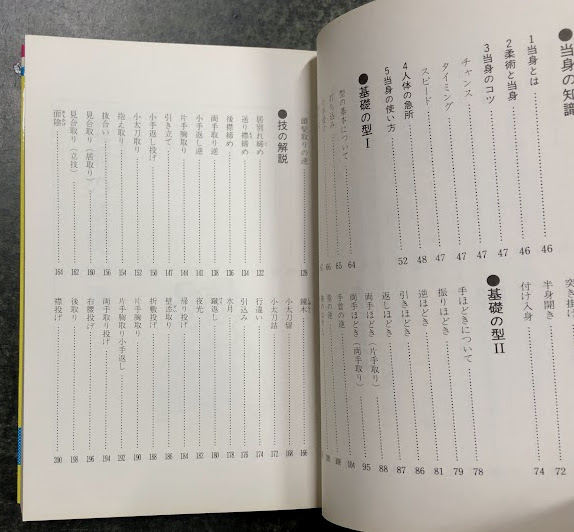 ●当身の知識
1当身とは 46
2柔術と当身 46
3当身のコツ 47
チャンス 47
タイミング 47
スピード 47
4人体の急所 48
5当身の使い方 52
●基礎の型Ⅰ
型の基本について 64
打ち込み 65
66
突き掛け
半身開き 72
付け入身 74
●基礎の型Ⅱ
手ほどきについて 78
振りほどき 79
逆ほどき 81
引きほどき 86
87
両手ほどき（片手取り） 88
両手ほどき（両手取り） 95
手首の逆 104
頭髪取りの逆 128
●技の解説
132
送り襟締め 134
後襟締め 136
両手取り逆 138
小手返し逆 141
片手胸取り 144
引き立て 147
小手返し投げ 150
小太刀取り 152
抱え取り 154
抜合い 156
見合取り（居取り） 160
見合取り（立技） 162
面捻 164
鐘木 166
小太刀留 168
小太刀詰 172
行違い 174
引込み 176
水月 178
蹴返し 180
夜光 182
帰り投げ 184
壁添取り 186
折敷投げ 188
片手胸取り 190
片手胸取り小手返し 192
両手取り投げ 194
右腰投げ 196
後取り 198
襟投げ 200